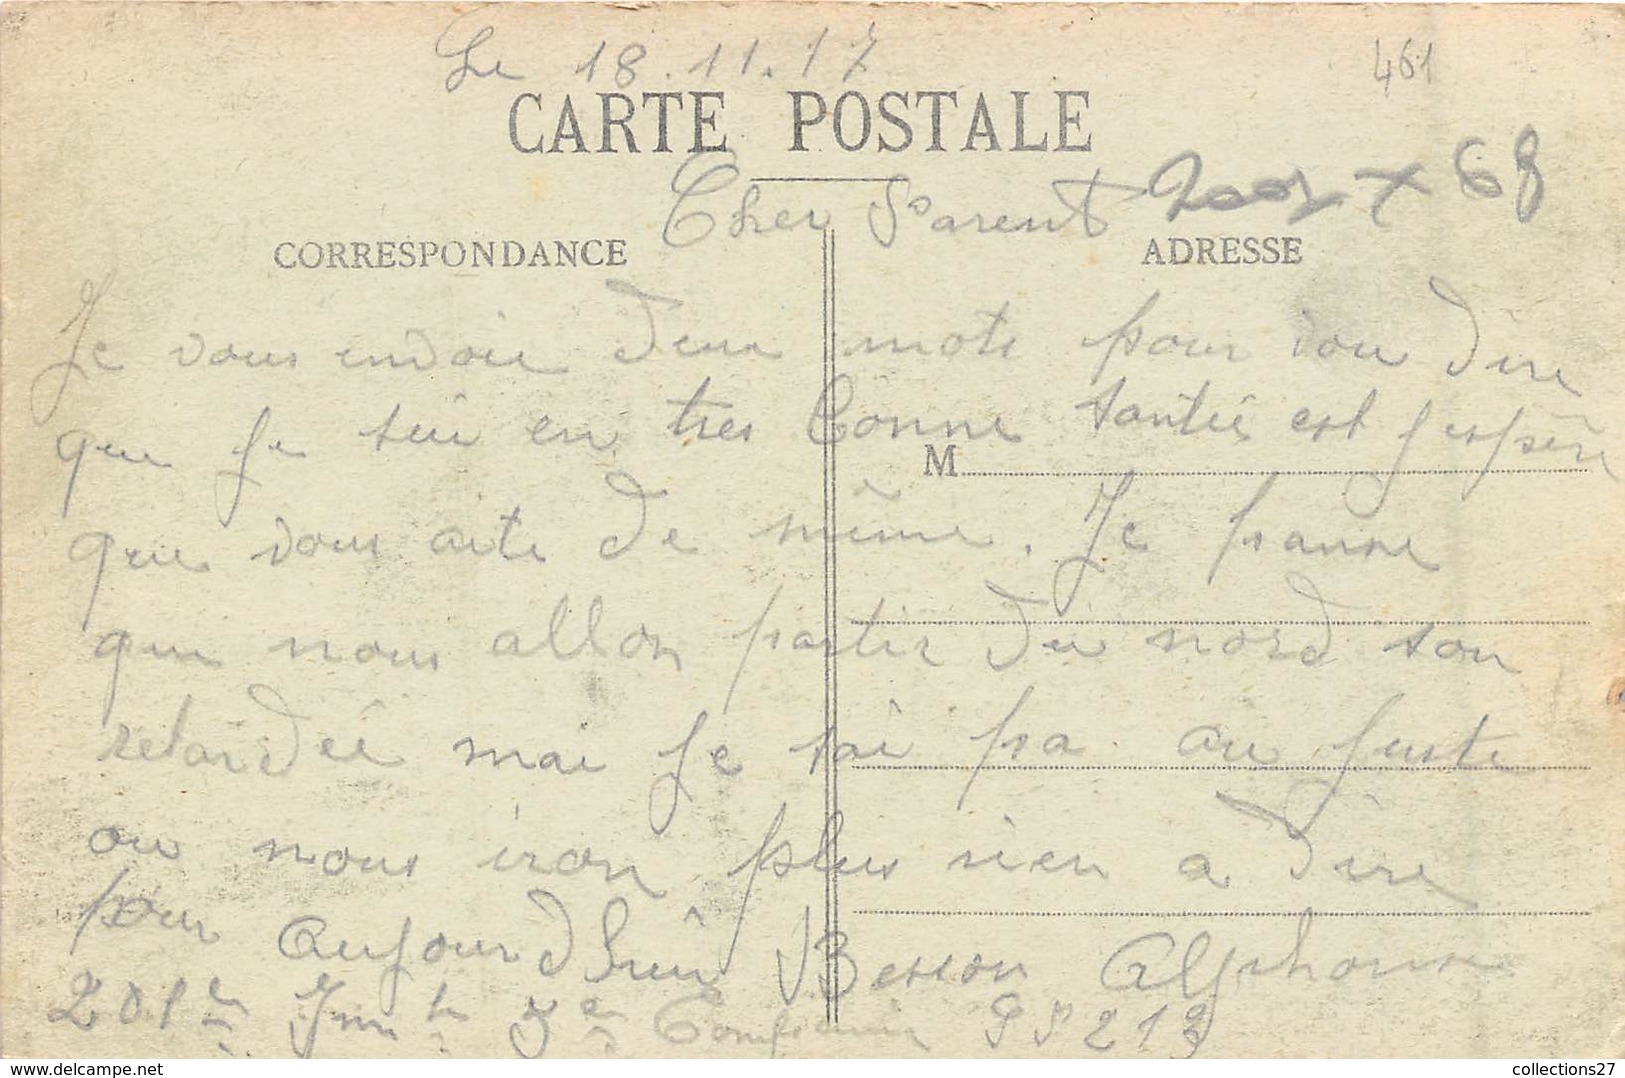 Le 18.11.17
461
CARTE POSTALE
Cher Parent
x 68
CORRESPONDANCE
ADRESSE
Je vous envoie deux mots pour vou dire
que je sui en tres bonne santié est j espère
M
que vous aite de même. Je panse
que nous allon partir du nord son
retardeé mai je sai pa au juste
ou nous iron plus rien a dire
pour aujourdhui Besson Alphonse
201e Inf 5e Compagnie SP 213
www.delcampe.net
collections27